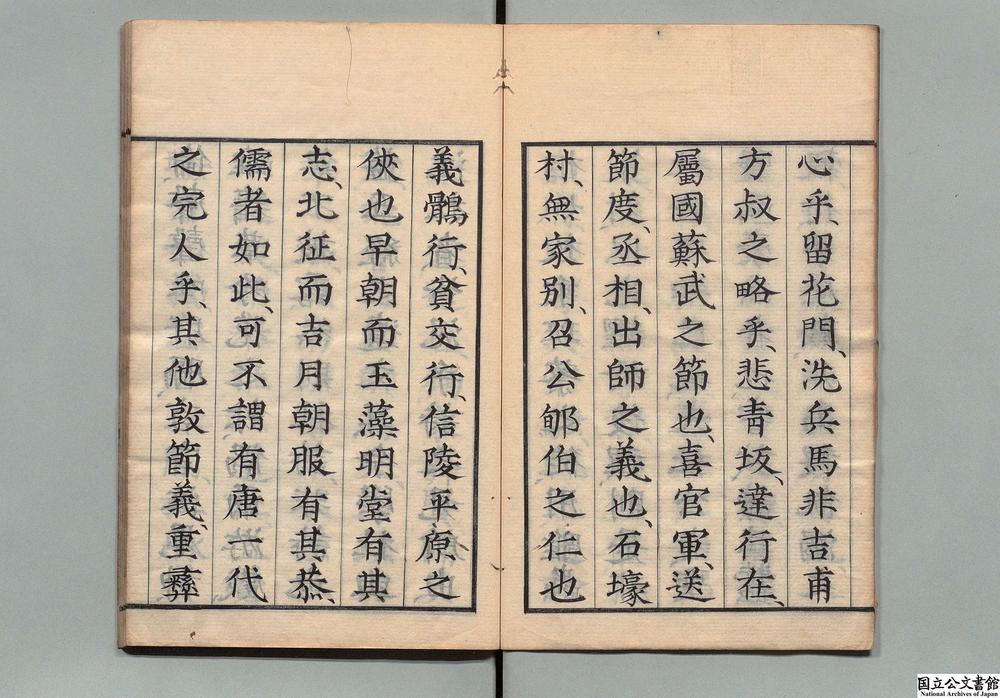 心乎、留花門、洗兵馬非吉甫
方叔之略乎、悲青坂、達行在、
屬國蘇武之節也、喜官軍、送
節度、丞相、出師之義也、石壕
村、無家別、召公郇伯之仁也
義鶻行、貧交行、信陵平原之
俠也早朝而玉藻明堂有其
志、北征而吉月朝服有其恭、
儒者如此、可不謂有唐一代
之完人乎、其他敦節義、重彝
国立公文書館
National Archives of Japan